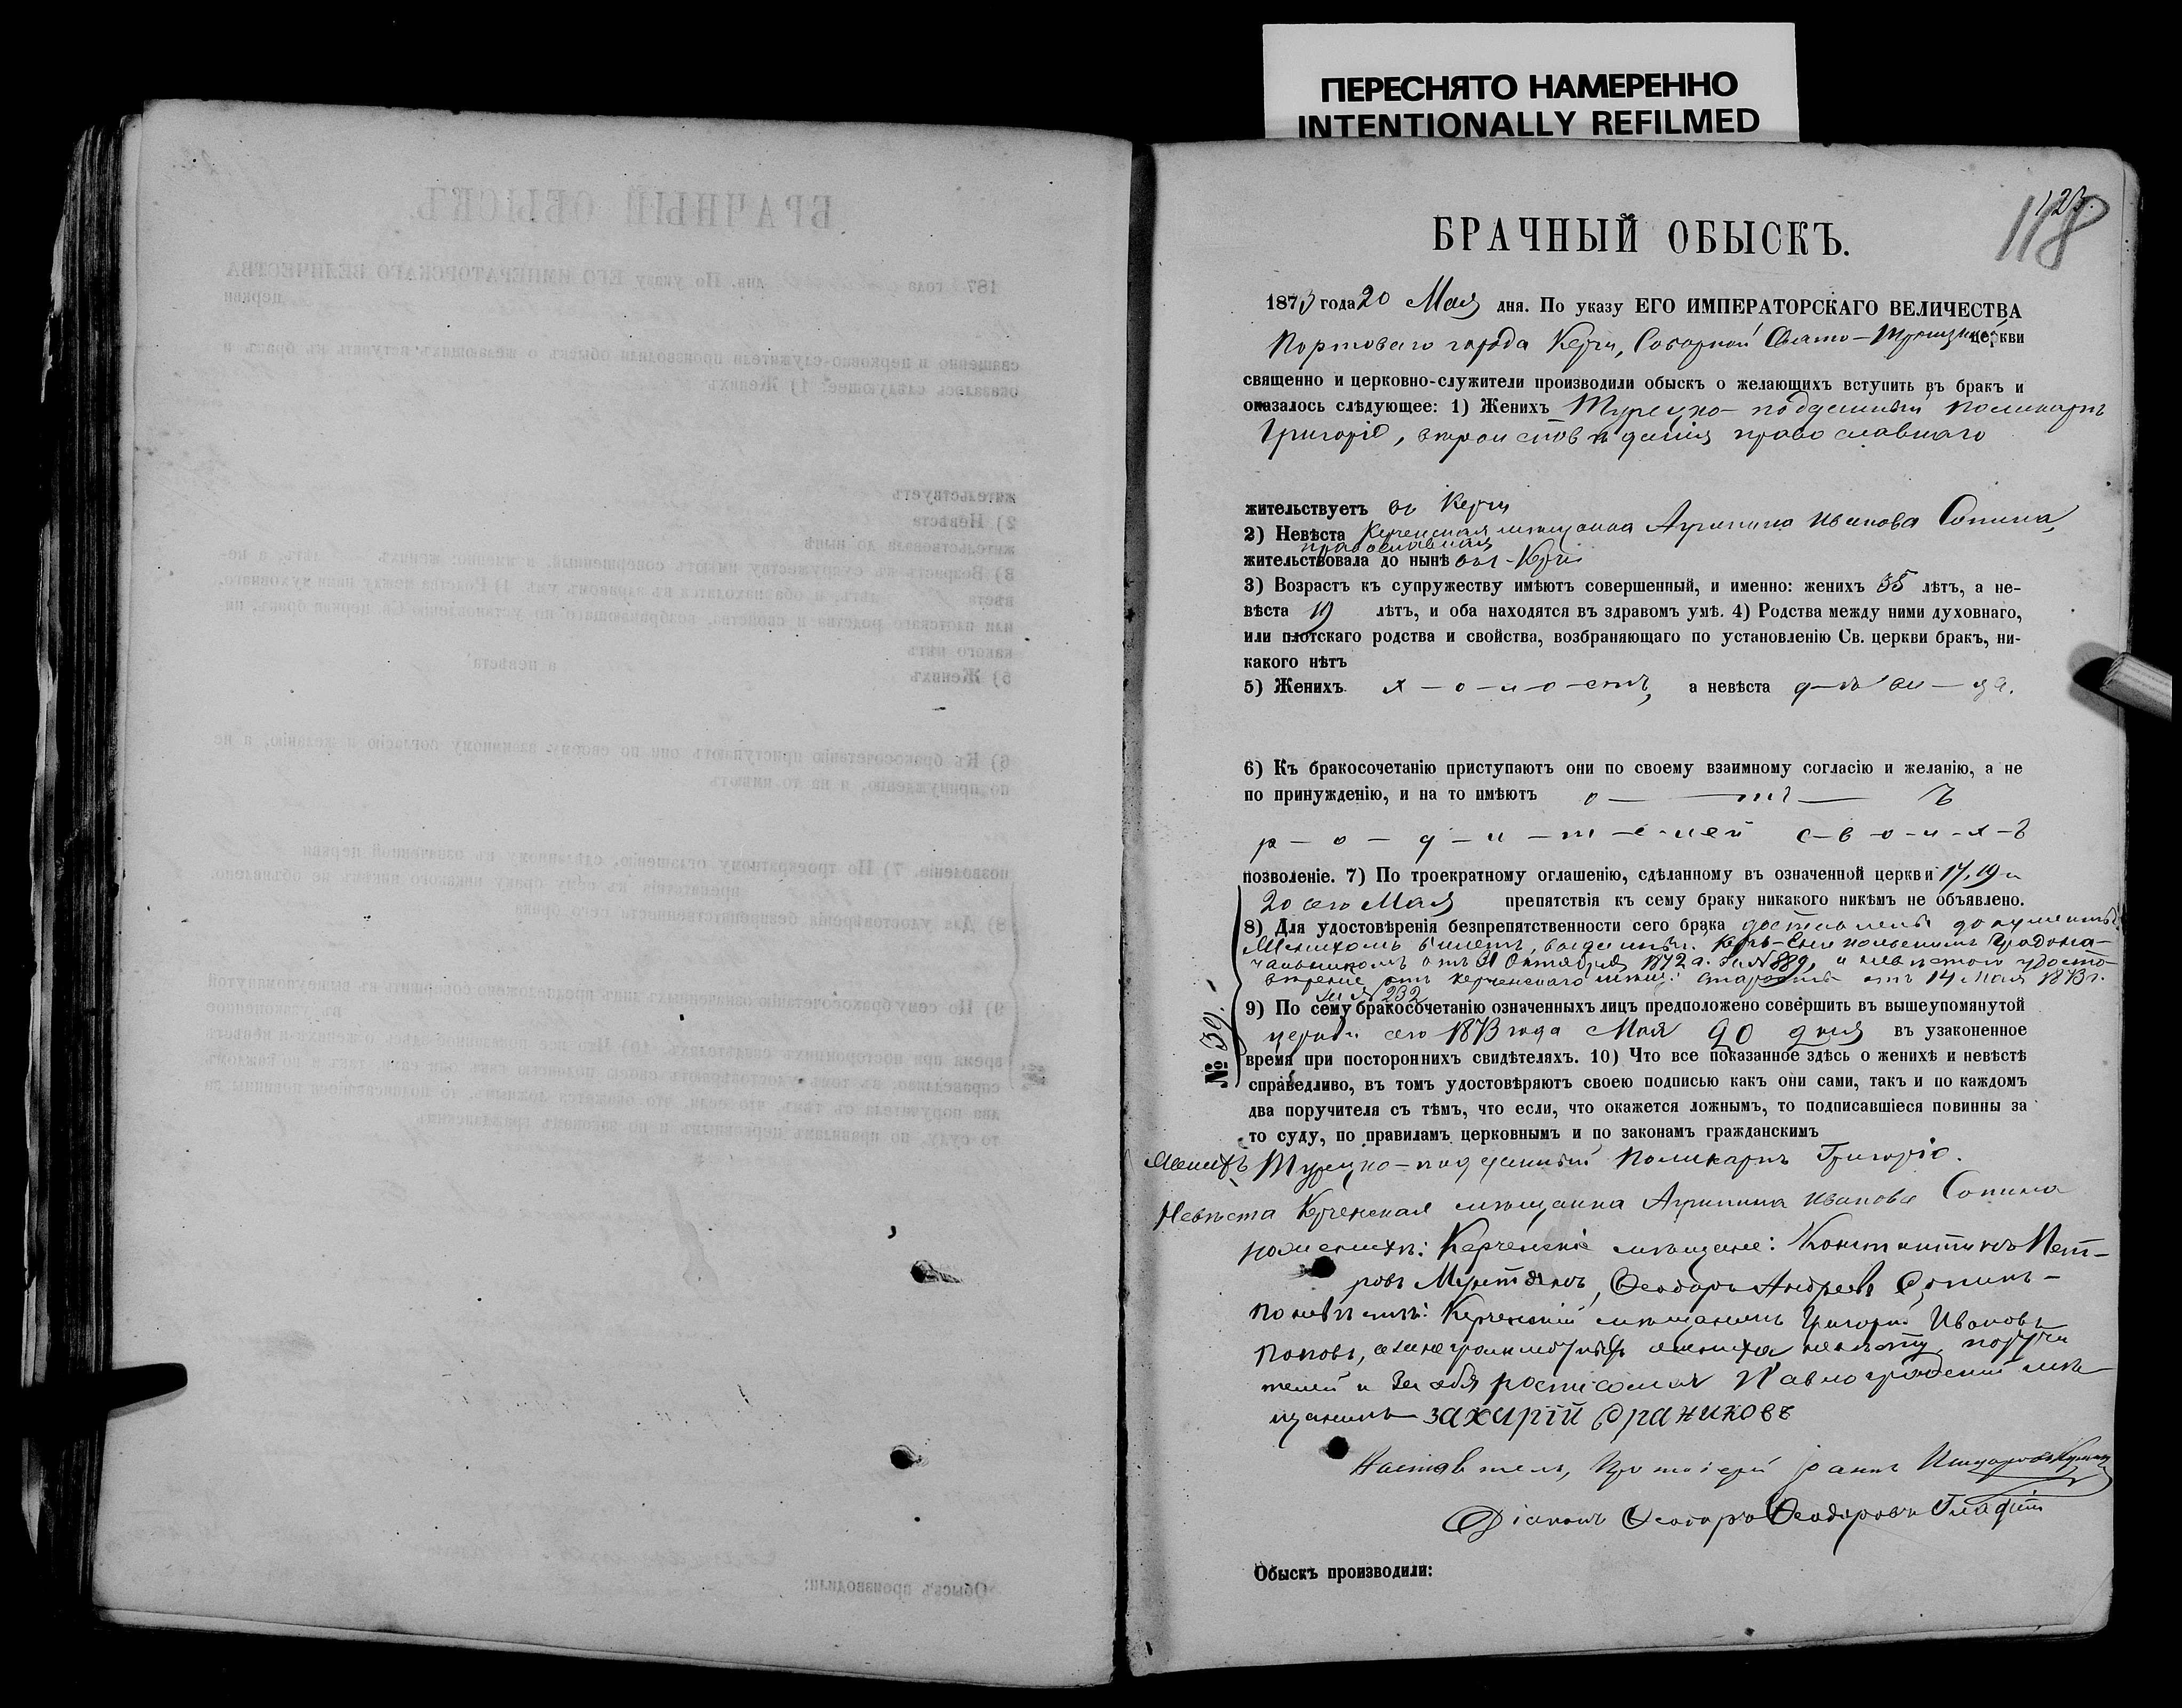 ПЕРЕСНЯТО НАМЕРЕННО
INTENTIONALLY REFILMED
123.
118
БРАЧНЫЙ ОБЫСКЪ.
1873 года 20 Мая дня. По указу ЕГО ИМПЕРАТОРСКАГО ВЕЛИЧЕСТВА
Портоваго города Керчи, Соборной Свято-Троицкой церкви
священно и церковно-служители производили обыскъ о желающихъ вступить въ бракъ и
оказалось слѣдующее: 1) Женихъ Турецко-подданный Поликарпъ
Григоріо, вѣроисповѣданія православнаго
жительствуетъ въ Керчи
2) Невѣста Керченская мѣщанка Агрипина Иванова Сопина,
православная
жительствовала до нынѣ въ г. Керчи
3) Возрастъ къ супружеству имѣютъ совершенный, и именно: женихъ 35 лѣтъ, а не-
вѣста 19 лѣтъ, и оба находятся въ здравомъ умѣ. 4) Родства между ними духовнаго,
или плотскаго родства и свойства, возбраняющаго по установленію Св. церкви бракъ, ни-
какого нѣтъ
5) Женихъ х-о-л-о-стъ, а невѣста д-ѣ-ви-ца.
6) Къ бракосочетанію приступаютъ они по своему взаимному согласію и желанію, а не
по принужденію, и на то имѣютъ о — т — ъ
р-о-д-и-т-е-лей с-в-о-и-х-ъ
позволеніе. 7) По троекратному оглашенію, сдѣланному въ означенной церкви 17, 19 и
20 сего Мая препятствія къ сему браку никакого никѣмъ не объявлено.
8) Для удостовѣренія безпрепятственности сего брака доставлены документы:
Женихомъ билетъ, выданный Керчь-Еникольскимъ Градона-
чальникомъ отъ 31 Октября 1872 г. за № 889, а невѣстою удосто-
вѣреніе отъ Керченскаго мѣщ: старосты отъ 14 Мая 1873 г.
за № 232
9) По сему бракосочетанію означенныхъ лицъ предположено совершить въ вышеупомянутой
церкви сего 1873 года Мая 20 дня въ узаконенное
№ 39.
время при постороннихъ свидѣтеляхъ. 10) Что все показанное здѣсь о женихѣ и невѣстѣ
справедливо, въ томъ удостовѣряютъ своею подписью какъ они сами, такъ и по каждомъ
два поручителя съ тѣмъ, что если, что окажется ложнымъ, то подписавшіеся повинны за
то суду, по правиламъ церковнымъ и по законамъ гражданскимъ
Женихъ Турецко-подданный Поликарпъ Григоріо.
Невѣста Керченская мѣщанка Агрипина Иванова Сопина
по женихѣ: Керченскіе мѣщане: Константинъ Пет-
ровъ, Ѳеодоръ Андреевъ
По невѣстѣ: Керченскій мѣщанинъ Григорій Ивановъ
Поповъ, а за неграмотныхъ жениха невѣсту, поручи
телей и за себя росписался Павлоградскій мѣ
щанинъ Захарій Драниковъ
Настоятель, Протоіерей Іоаннъ
Діаконъ Ѳеодоръ Ѳеодоровъ Гладкій
Обыскъ производили: